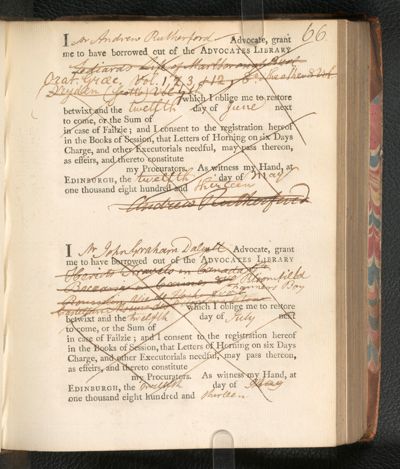 66
I Mr Andrew Rutherford Advocate, grant
me to have borrowed out of the ADVOCATES LIBRARY
Life of Marlborough
Orat. Græc. Vol. 1, 2, 3,
Dryden (Scott) Vol
which I oblige me to restore
betwixt and the twelfth day of June next
to come, or the Sum of
in case of Failzie; and I consent to the registration hereof
in the Books of Session, that Letters of Horning on six Days
Charge, and other Executorials needful, may pass thereon,
as effeirs, and thereto constitute
my Procurators. As witness my Hand, at
EDINBURGH, the twelfth day of May
one thousand eight hundred and thirteen
Andrew Rutherfurd
I Mr John Graham Dalyell Advocate, grant
me to have borrowed out of the ADVOCATES LIBRARY
Travels in Canada
Bloomfield
Farmers Boy
which I oblige me to restore
betwixt and the twelfth day of July next
to come, or the Sum of
in case of Failzie; and I consent to the registration hereof
in the Books of Session, that Letters of Horning on six Days
Charge, and other Executorials needful, may pass thereon,
as effeirs, and thereto constitute
my Procurators. As witness my Hand, at
EDINBURGH, the twelfth day of May
one thousand eight hundred and thirteen.